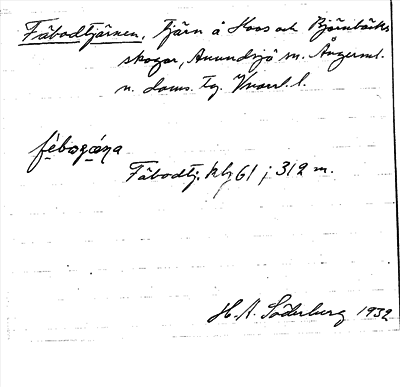 Fäbodtjärnen, Tjärn å Hoos och Björnbäcks
skogar, Anundsjö sn. Ångerml.
n. doms. tg. Västl. l.
fébogána
Fäbodtj. kbl 61 j 312 m.
H. A. Söderberg 1932